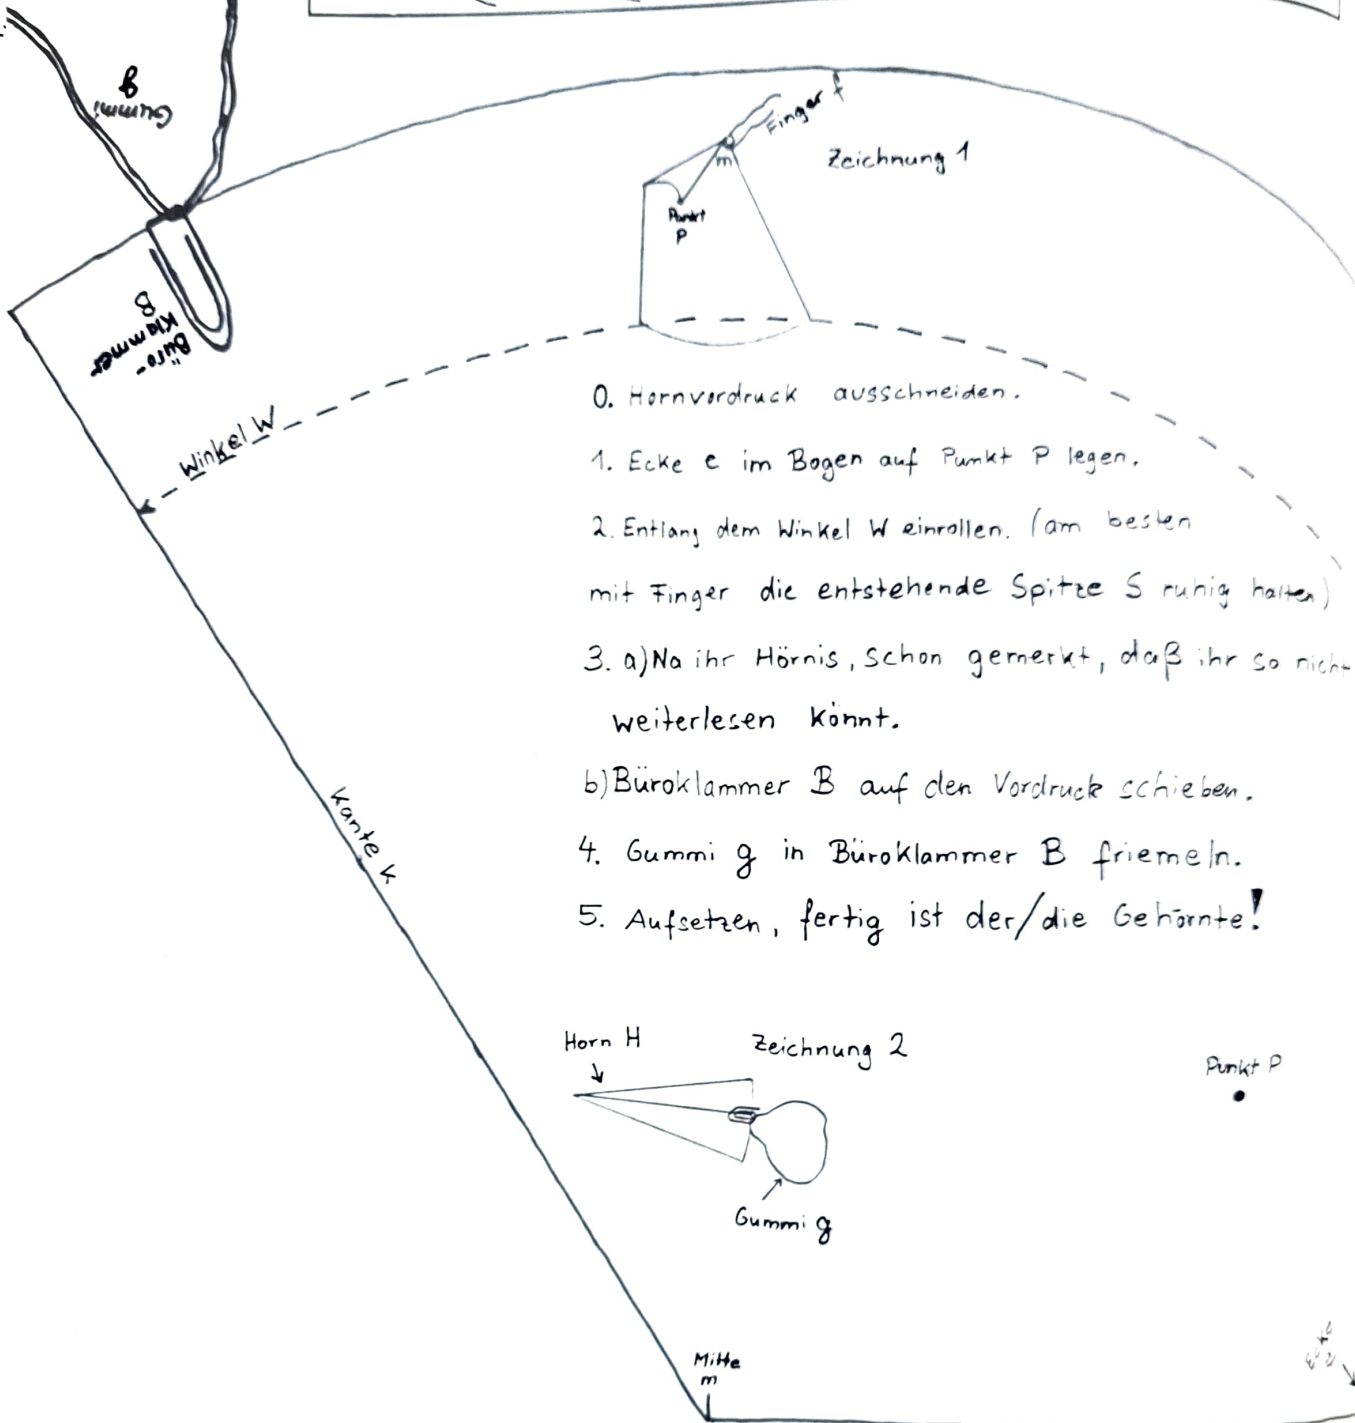 Gummi
g
Finger f
m
Zeichnung 1
Punkt
P
Büro-
Klammer
B
Winkel W
0. Hornvordruck ausschneiden.
1. Ecke e im Bogen auf Punkt P legen.
2. Entlang dem Winkel W einrollen. (am besten
mit Finger die entstehende Spitze S ruhig halten)
3. a) Na ihr Hörnis, schon gemerkt, daß ihr so nicht
weiterlesen könnt.
b) Büroklammer B auf den Vordruck schieben.
4. Gummi g in Büroklammer B friemeln.
5. Aufsetzen, fertig ist der/die Gehörnte!
Kante k
Horn H
Zeichnung 2
Gummi g
Punkt P
Mitte
m
Ecke
e